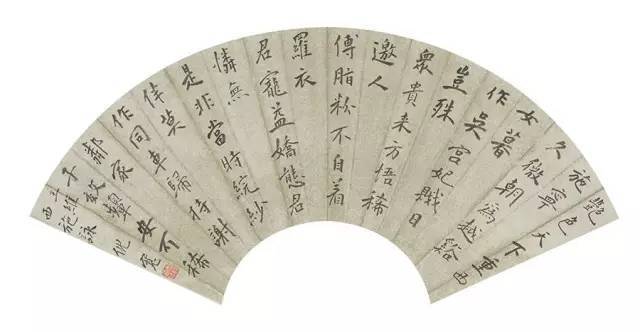 艷色天下重西
施寧
久微朝為越谿
女暮
作吳宮妃賤日
豈殊
衆貴来方悟稀
邀人
傅脂粉不自着
羅衣
君寵益嬌態君
憐無
是非當時浣紗
伴莫
作同車歸持謝
鄰家
子效顰安可稀
西施詠